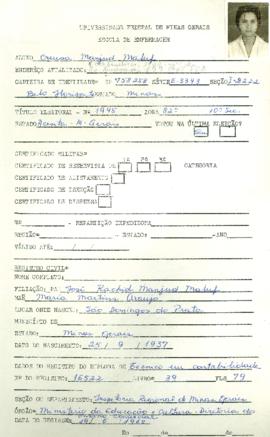 UNIVERSIDADE FEDERAL DE MINAS GERAIS
ESCOLA DE ENFERMAGEM
ALUNO
ENDEREÇO ATUALIZADO:
CARTEIRA DE IDENTIDADE- Nº 758258 SÉRIE SEÇÃO
Belo Horizonte Minas
TÍTULO ELEITORAL - Nº 1945 ZONA 82ª
ESTADO VOTOU NA ÚLTIMA ELEIÇÃO?
CERTIFICADO MILITAR=
CERTIFICADO DE RESERVISTA 1ª 2ª 3ª CATEGORIA
CERTIFICADO DE ALISTAMENTO
CERTIFICADO DE ISENÇÃO
CERTIFICADO DE DISPENSA
Nº - REPARTIÇÃO EXPEDIDORA
REGIÃO= - ESTADO= -ANO
VÁLIDO ATÉ / /
REGISTRO CIVIL=
NOME COMPLETO:
FILIAÇÃO: PAI José Rachid
MÃE Maria Martins Araujo
LUGAR ONDE NASCEU: São Domingos do Prata
MUNICÍPIO DE
ESTADO: Minas Gerais
DATA DO NASCIMENTO: 25 / 9 / 1937
DADOS DO REGISTRO DO DIPLOMA DE Técnico em contabilidade
Nº DO REGISTRO 16522 LIVRO= 39 FLS 79
SEÇÃO DO Inspetoria Regional de Minas Gerais
ÓRGÃO= Ministério da Educação e Cultura - Diretoria do
DATA DO REGISTRO
Nº de de